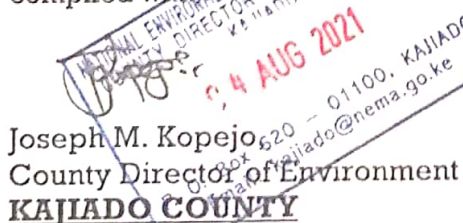 NATIONAL ENVIRONM
COUNTY DIRECTOR
04 AUG 2021
620 - 01100, KAJIADO
Email: kajiado@nema.go.ke
Joseph M. Kopejo
County Director of Environment
KAJIADO COUNTY